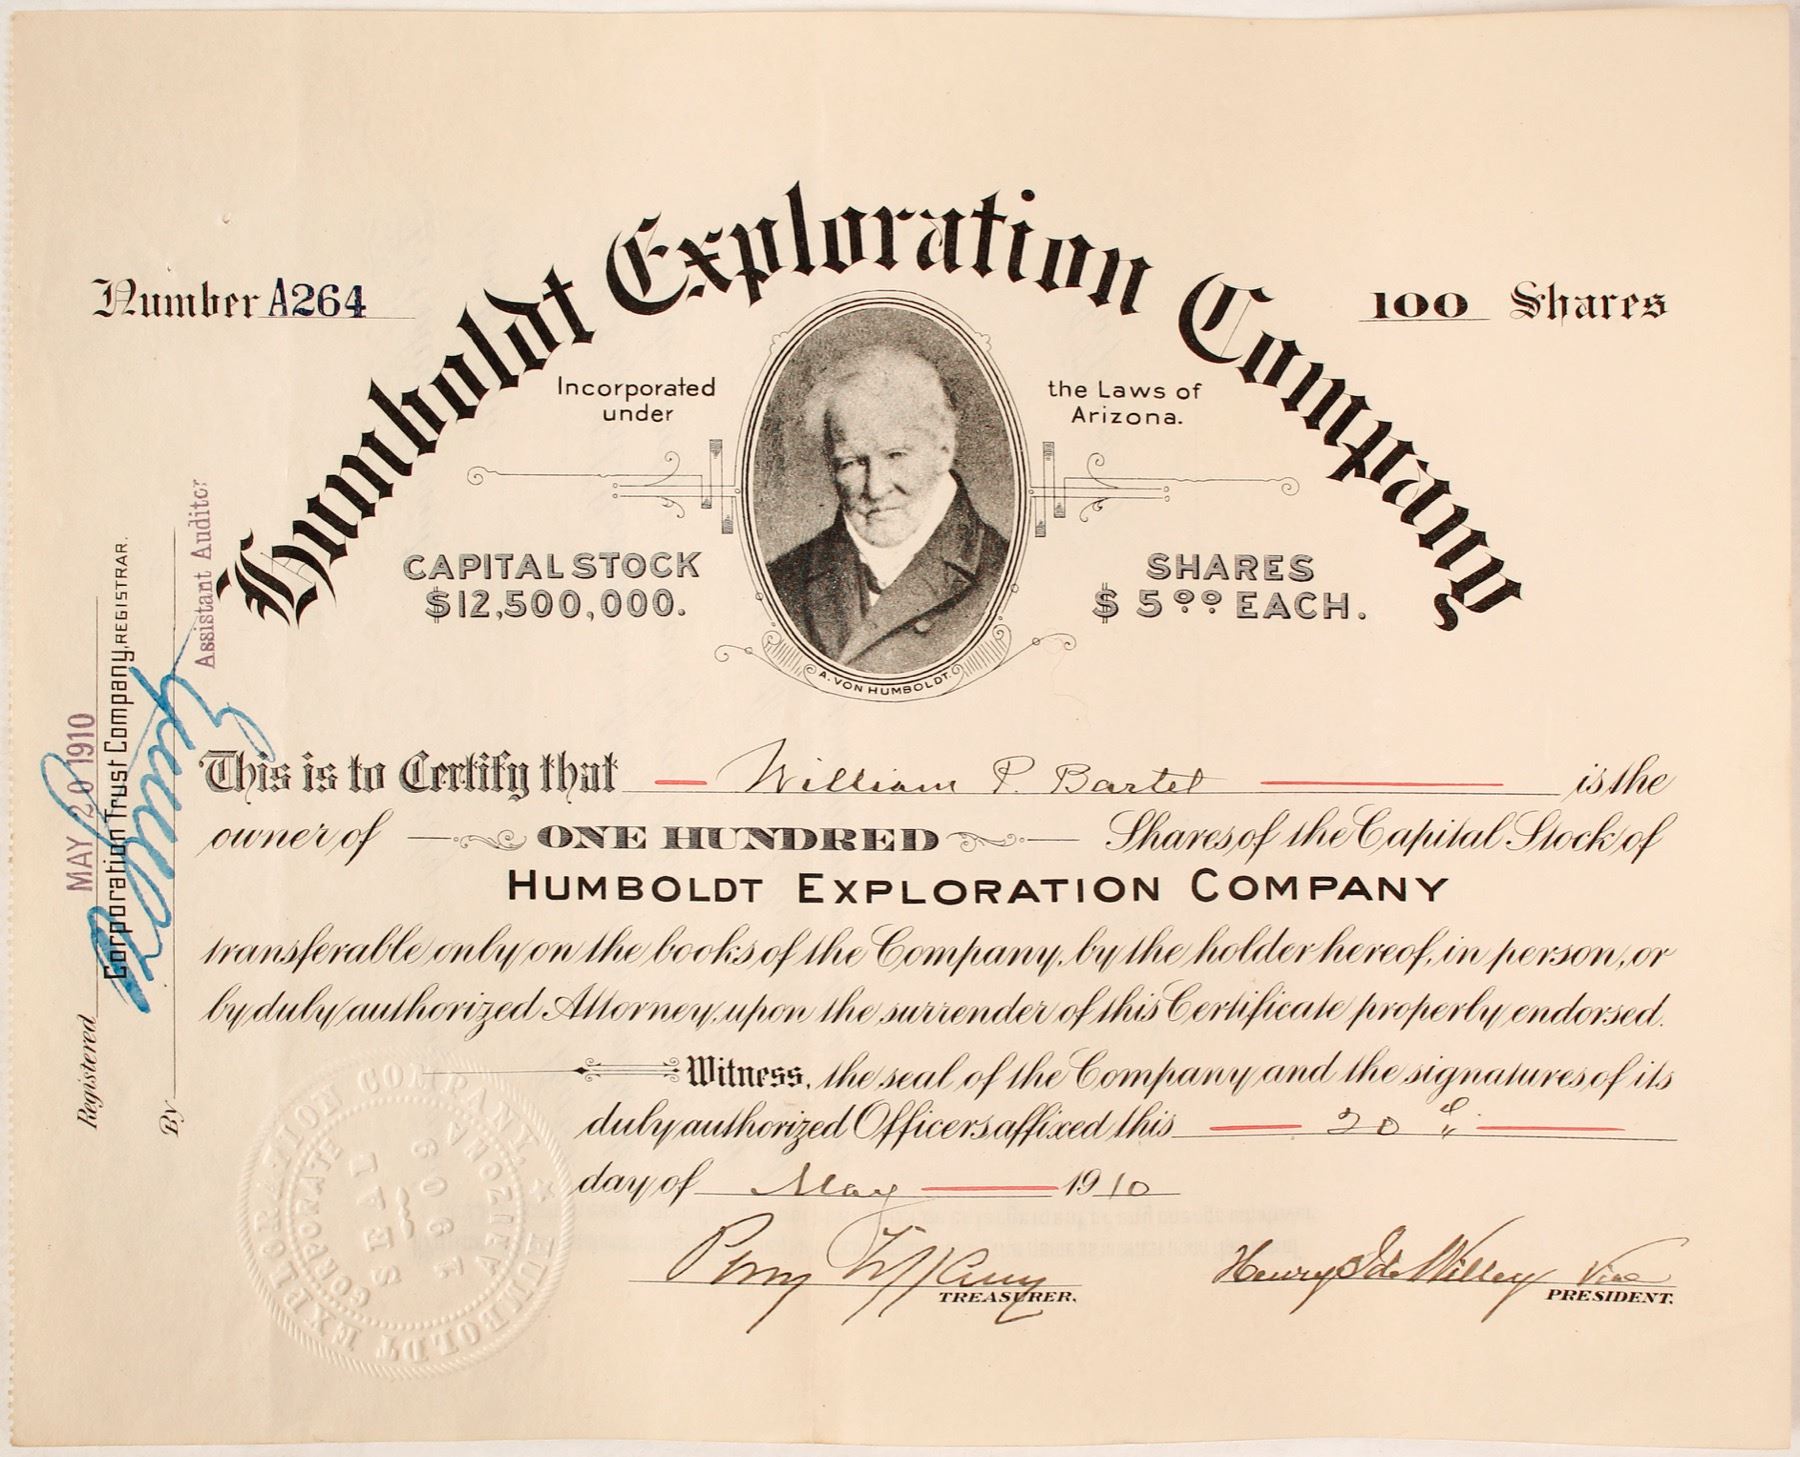 Humboldt Exploration Company
Number A264
100 Shares
Incorporated under
the Laws of Arizona.
CAPITAL STOCK
$12,500,000.
SHARES
$5.00 EACH.
A. VON HUMBOLDT.
This is to Certify that William P. Bartel is the
owner of ONE HUNDRED Shares of the Capital Stock of
HUMBOLDT EXPLORATION COMPANY
transferable only on the books of the Company, by the holder hereof, in person, or
by duly authorized Attorney, upon the surrender of this Certificate properly endorsed.
Witness, the seal of the Company and the signatures of its
duly authorized Officers affixed this 20th
day of May 1910
Perry
TREASURER.
Henry Ide Willey Vice
PRESIDENT.
Registered MAY 20 1910
Corporation Trust Company, REGISTRAR.
By
Assistant Auditor
HUMBOLDT EXPLORATION COMPANY
CORPORATE
SEAL
1908
ARIZONA